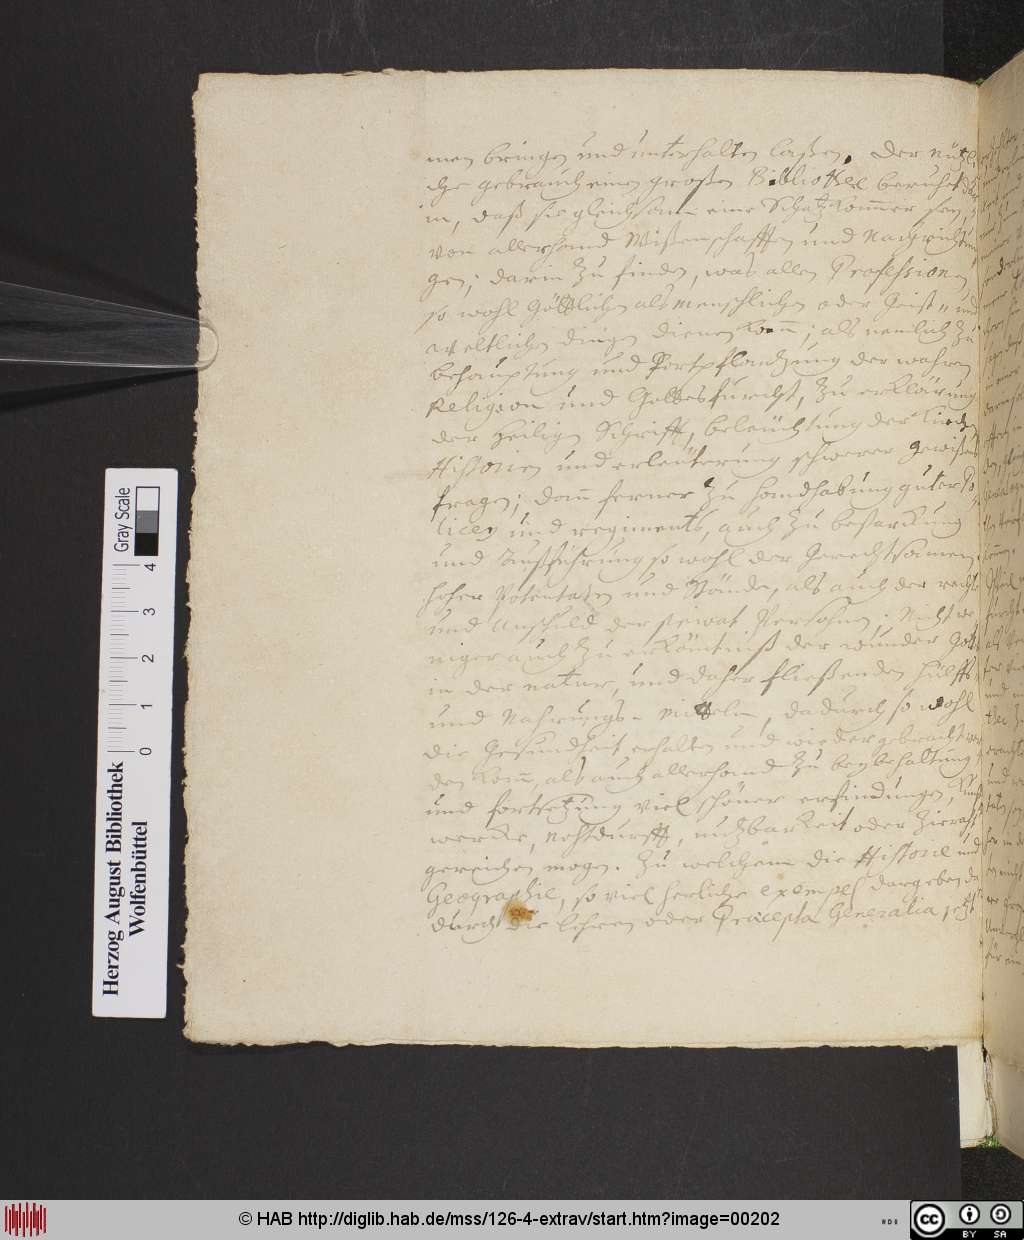 men bringen und unterhalten laßen. Der nutzl
che gebrauch einer großen Bibliothec beruhet dar
in, daß sie gleichsam eine Schatz Kammer sey,
von allerhand Wißenschafften und Nachrichtun
gen; darin zu finden, was allen Professionen
so wohl Göttlichen als menschlichen oder Geist- und
weltlichen dingen dienen kan; als nemlich zu
behauptung und Fortpflantzung der wahren
Religion und Gottesfurcht, zu erklärung
der Heiligen Schrifft, beleüchtung der Kirchen
Historien und erleüterung schwerer gewißens
fragen; dann ferner zu handhabung guter Po
licey und regiments, auch zu bestarckung
und Außführung so wohl der Gerechtsamen
hoher Potentaten und Stände, als auch der rechte
und unschuld der privat Persohnen; Nicht we
niger auch zu erkäntniß der wunder Gott
in der natur, und daher fließenden hülffs
und Nahrungs-Mitteln, dadurch so wohl
die Gesundheit erhalten und wieder gebracht wer
den kann, als auch allerhand zu beybehaltung
und fortsetzung viel schöner erfindungen, Kunst
wercke, Nohtdurfft, nutzbarkeit oder Zierath
gereichen mögen. Zu welchem die Historie und
Geographie, so viel herliche exempel dargeben da
durch die lehren oder Præcepta Generalia
© HAB http://diglib.hab.de/mss/126-4-extrav/start.htm?image=00202
Herzog August Bibliothek
Wolfenbüttel
0 1 2 3 4
Gray Scale
CC BY SA